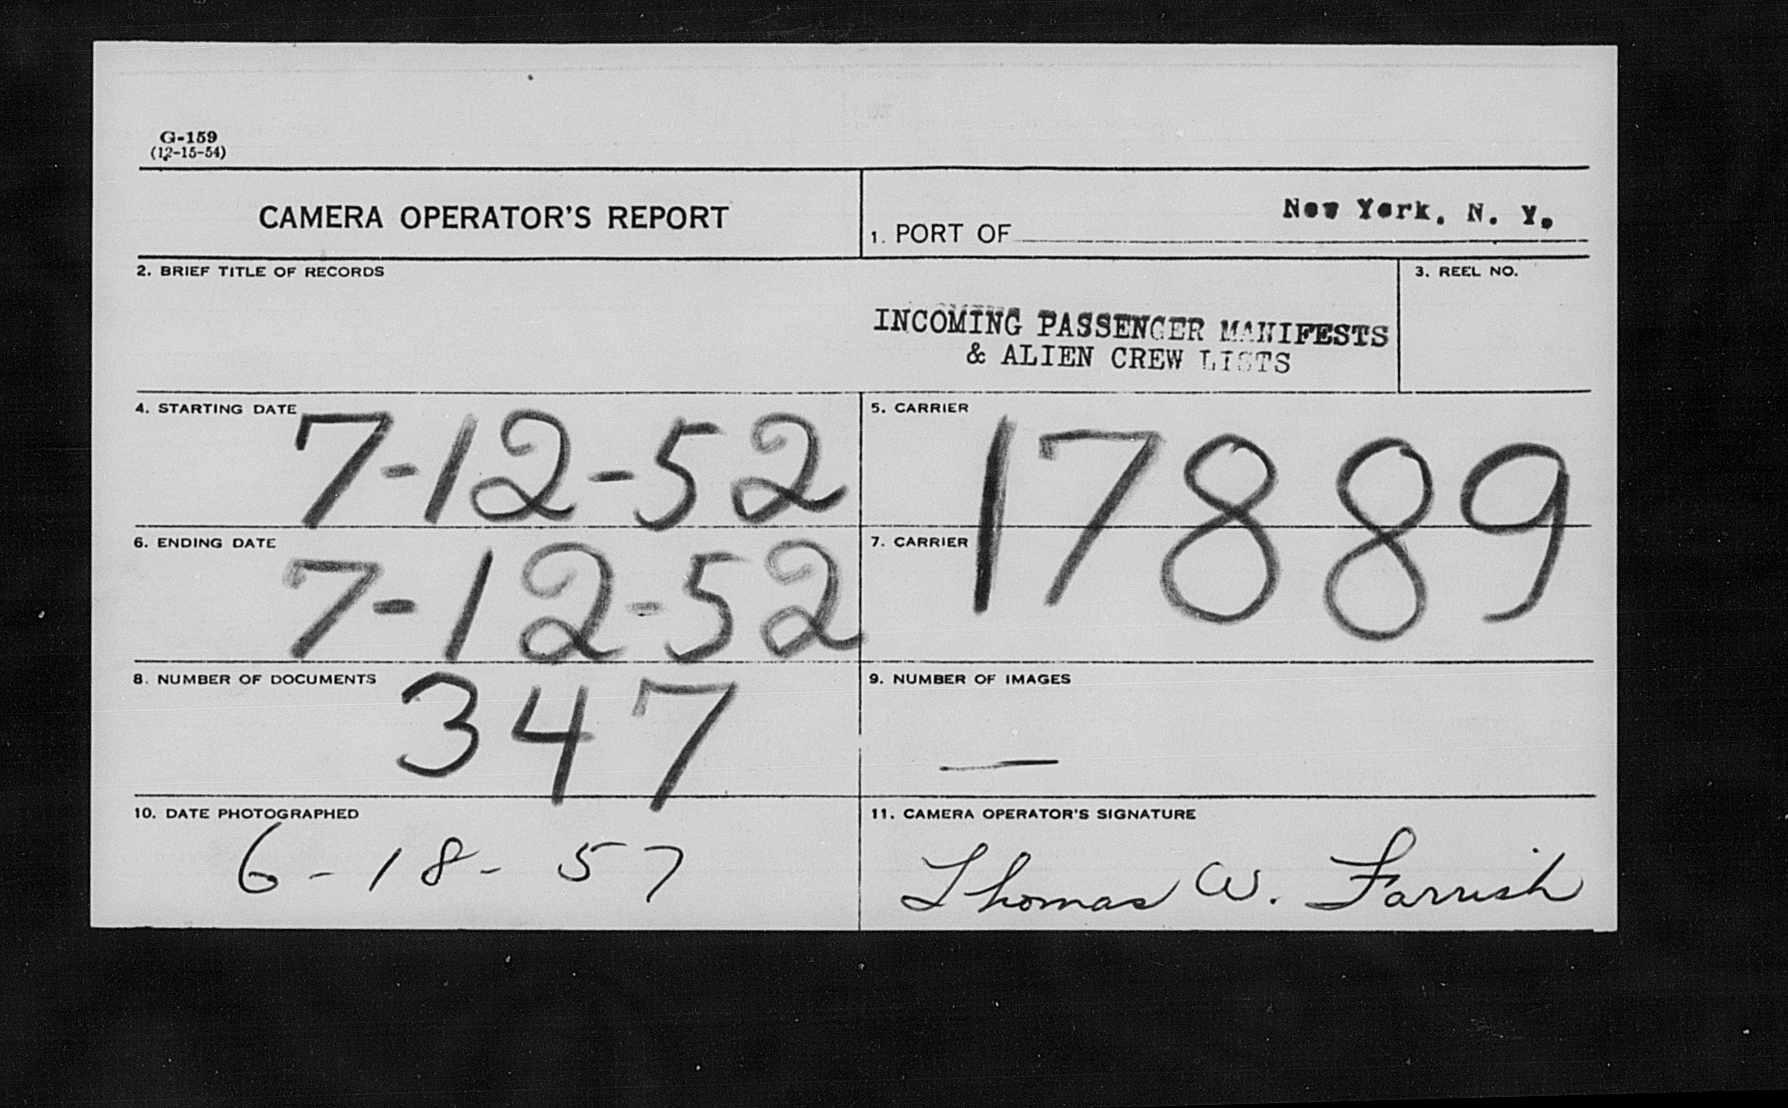 G-159
(12-15-54)
CAMERA OPERATOR'S REPORT
1. PORT OF New York, N. Y.
2. BRIEF TITLE OF RECORDS
INCOMING PASSENGER MANIFESTS
& ALIEN CREW LISTS
3. REEL NO.
4. STARTING DATE 7-12-52
5. CARRIER
17889
6. ENDING DATE 7-12-52
7. CARRIER
8. NUMBER OF DOCUMENTS 347
9. NUMBER OF IMAGES
—
10. DATE PHOTOGRAPHED
6-18-57
11. CAMERA OPERATOR'S SIGNATURE
Thomas W. Farrish